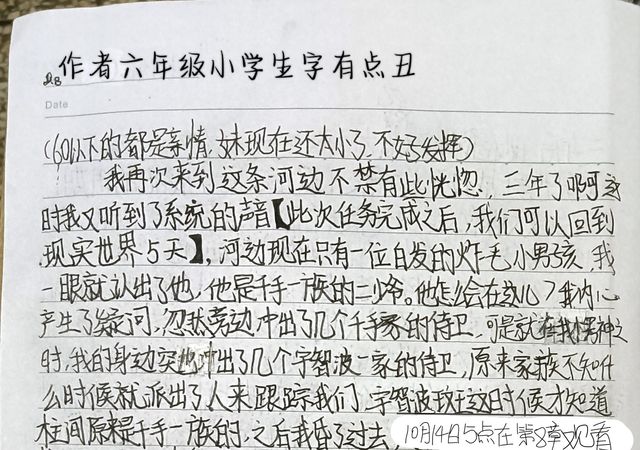 作者六年级小学生字有点丑
Date
(60以下的都是亲情，妹现在还太小了，不好发挥)
我再次来到这条河边不禁有些恍惚，三年了啊
时我又听到了系统的声音【此次任务完成之后，我们可以回到
现实世界5天】，河边现在只有一位白发的炸毛小男孩，我
一眼就认出了他，他是千手一族的二少爷。他怎么会在这儿？我内心
产生了疑问，忽然旁边冲出了几个千手家的侍卫，可是就在我
时，我的身边突然冲出了几个宇智波一家的侍卫，原来家族不知什
么时候就派出了人来跟踪我们，宇智波斑这时候才知道
柱间原来是千手一族的，之后我昏了过去，
10月14日5点在第8章观看